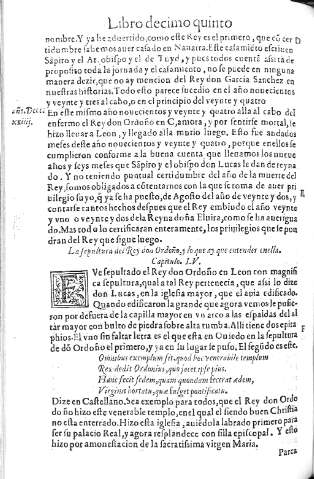 Libro decimo quinto
nombre. Y ya he aduertido, como este Rey es el primero, que cõ cer
tidumbre sabemos auer casado en Nauarra. Este casamiẽto escriuen
Sãpiro y el Arçobispo y el de Tuyd, y pues todos cuentã assi ta de
proposito toda la jornada y el casamiento, no se puede en ninguna
manera dezir, que no ay mencion del Rey don Garcia Sanchez en
nuestras historias. Todo esto parece sucedio en el año nouecientos
y veynte y tres al cabo, o en el principio del veynte y quatro
xxiiij.
En este mismo año nouecientos y veynte y quatro alla al cabo del
enfermo el Rey don Ordoño en Çamora, y por sentirse mortal, se
hizo lleuar a Leon, y llegado alla murio luego. Esto fue andados
meses deste año nouecientos y veynte y quatro, porque enellos se
cumplieron conforme a la buena cuenta que lleuamos los nueue
años y seys meses que Sãpiro y el obispo don Lucas le dan de reyna
do. Y no teniendo puntual certidumbre del año de la muerte del
Rey, somos obligados a cõtentarnos con la que se toma de auer pri
uilegio suyo, q̃ ya se ha puesto, de Agosto del año de veynte y dos, y
contarse tantos hechos despues que el Rey embiudo el año veynte
y vno o veynte y dos de la Reyna doña Eluira, como se ha auerigua
do. Mas todo lo certificaran enteramente, los priuilegios que se pon
dran del Rey que sigue luego.
La sepultura del Rey don Ordoño, y lo que ay que entender enella.
Capitulo. LV.
FVe sepultado el Rey don Ordoño en Leon con magnifi
ca sepultura, qual a tal Rey pertenecia, que assi lo dize
don Lucas, en la iglesia mayor, que el auia edificado.
Quando edificaron la grande que agora vemos le pusie-
ron por defuera de la capilla mayor en vn arco a las espaldas del al
tar mayor con bulto de piedra sobre alta tumba. Alli tiene dos epita
phios. El vno sin faltar letra es el que esta en Ouiedo en la sepultura
de dõ Ordoño el primero, y ya en su lugar se puso. El segũdo es este.
Omnibus exemplum sit, quod hoc venerabile templum
Rex dedit Ordonius, quo jacet ipse pius.
Hanc fecit sedem, quam quondam fecerat ædem,
Virginis hortatu, quæ fulget pontificatu.
Dize en Castellano. Sea exemplo para todos, que el Rey don Ordo
ño hizo este venerable templo, en el qual el siendo buen Christia
no esta enterrado. Hizo esta iglesia, auiẽdola labrado primero para
ser su palacio Real, y agora resplandece con silla episcopal. Y esto
hizo por amonestacion de la sacratissima virgen Maria.
Parca